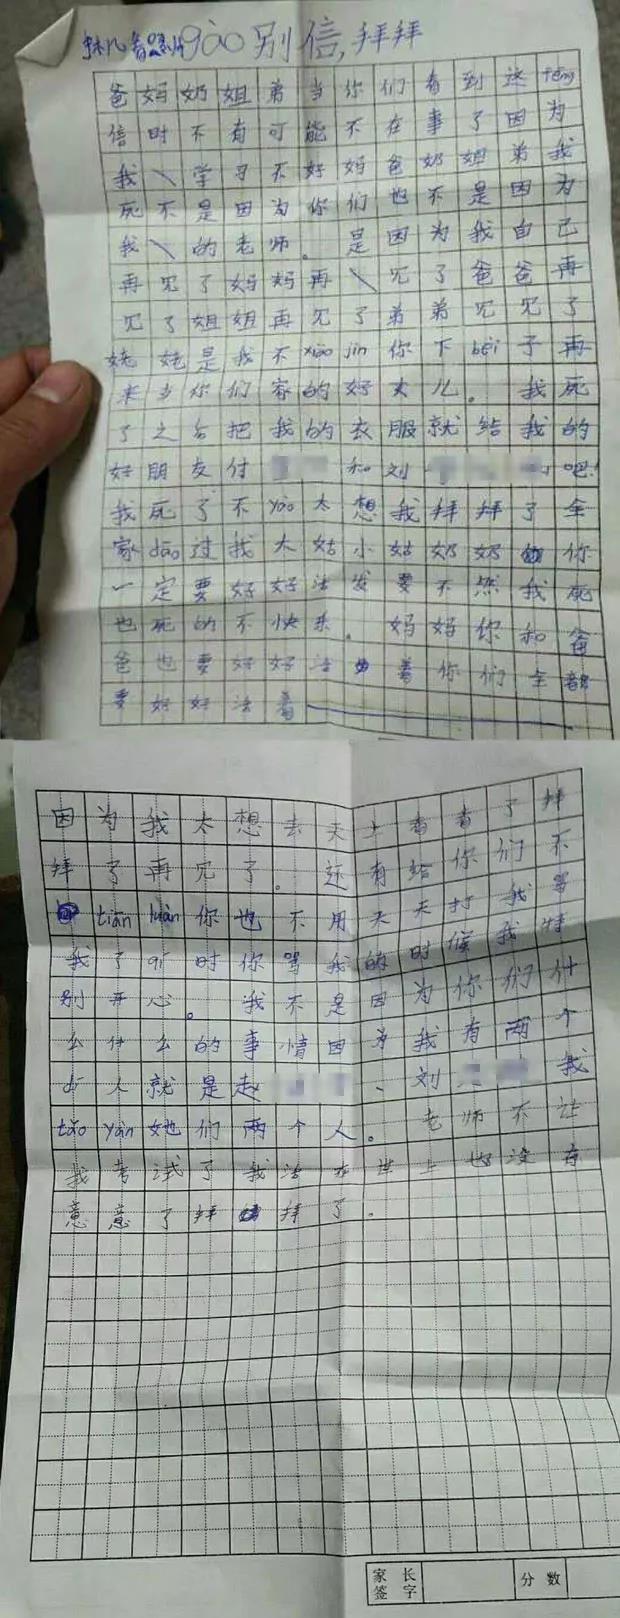 gào别信,拜拜
爸妈奶姐弟当你们看到这fēng
信时不有可能不在事了因为
我学习不好妈爸奶姐弟我
死不是因为你们也不是因为
我的老师。是因为我自己
再见了妈妈再见了爸爸再
见了姐姐再见了弟弟见见了
姥姥是我不xiào jìn你下bèi子再
来当你们家的好大儿。我死
了之后把我的衣服就给我的
好朋友付和刘吧!
我死了不yào太想我拜拜了全
家dào过我大姑小姑奶奶你
一定要好好法发要不然我死
也死的不快乐。妈妈你和爸
爸也要好好法着你们全部
要好好法着
因为我太想去天上看看了拜
拜了再见了。还有给你们不
tiān luàn你也不用天天打我骂
我了听时你骂我的时候我特
别开心。我不是因为你们什
么什么的事情因为我有两个
人就是赵、刘我
tǎo yàn她们两个人。老师不让
我考试了我法在世上也没有
意意了拜拜了。
家长
签字
分数